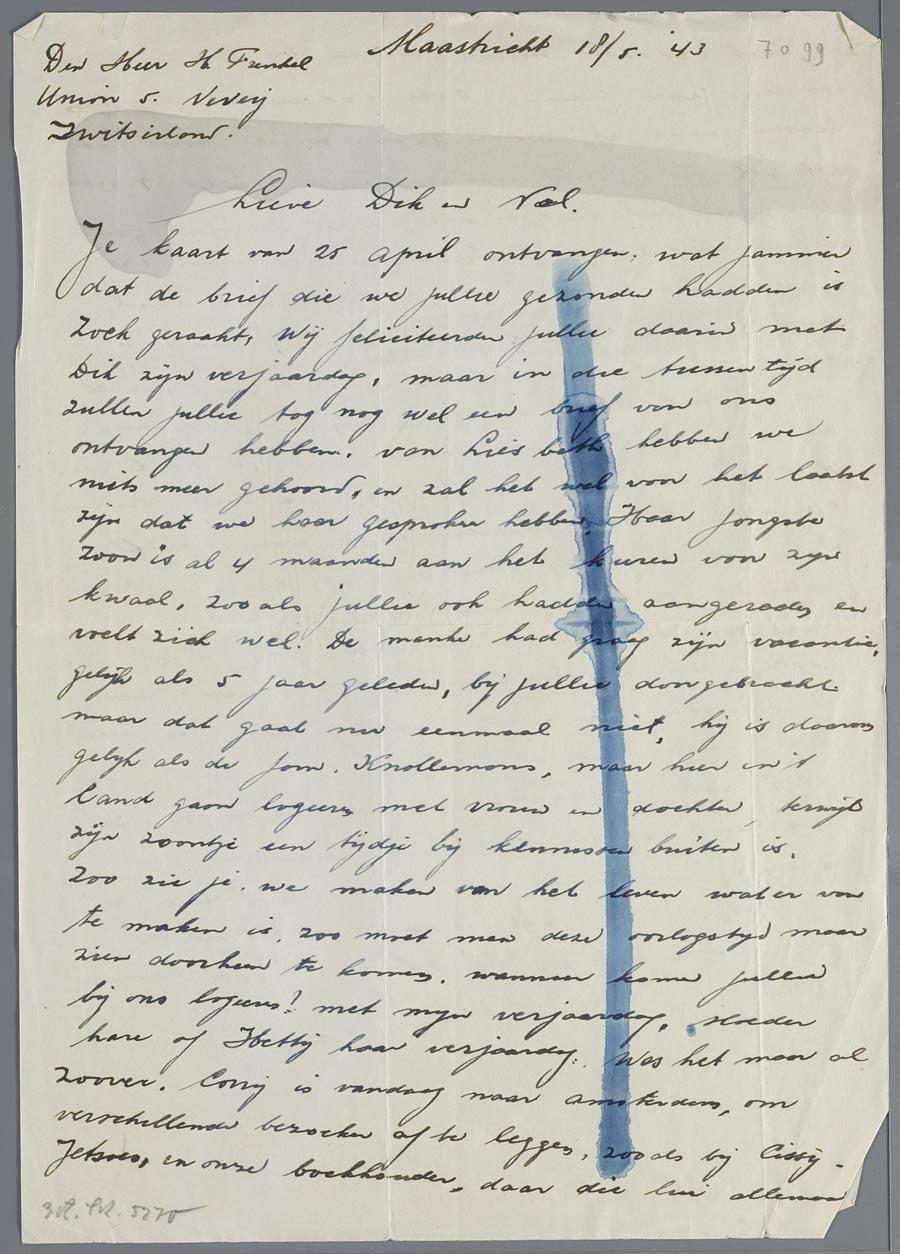 Maastricht 18/5. '43
7099
Den Heer H. Frenkel
Union 5. Vevey
Zwitserland.
Lieve Dik en Nel.
Je kaart van 25 april ontvangen, wat jammer
dat de brief die we jullie gezonden hadden is
zoek geraakt, Wij feliciteerden jullie daarin met
Dik zijn verjaardag, maar in die tussen tijd
zullen jullie tog nog wel een brief van ons
ontvangen hebben. van Lies beth hebben we
niets meer gehoord, en zal het wel voor het laatst
zijn dat we haar gesproken hebben. Haar jongste
zoon is al 4 maanden aan het kuren voor zijn
kwaal, zooals jullie ook hadden aangeraden en
voelt zich wel. De manke had graag zijn vacantie,
gelijk als 5 jaar geleden, bij jullie doorgebracht
maar dat gaat nu eenmaal niet, hij is daarom
gelijk als de fam. Knollemans, maar hier in 't
land gaan logeren met vrouw en dochter, terwijl
zijn zoontje een tijdje bij kennissen buiten is.
Zoo zie je, we maken van het leven wat er van
te maken is, zoo moet men deze oorlogstijd maar
zien doorheen te komen. wanneer komen jullie
bij ons logeren! met mijn verjaardag, Moeder
hare of Hetty haar verjaardag. Was het maar al
zoover. Corry is vandaag naar amsterdam, om
verschillende bezoeken af te leggen, zooals bij Cissy-
en onze boekhouder, daar die lui allemaal